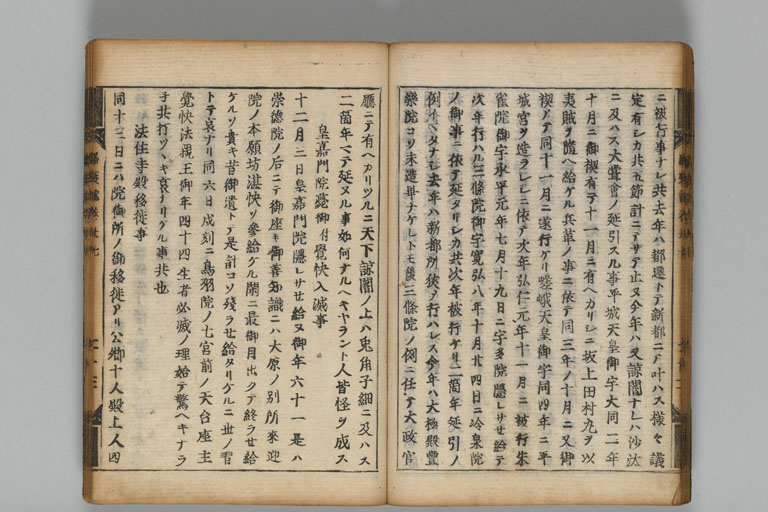 ニ被行事ナレ共去年ハ都遷トテ新都ニテ叶ハス様々議
定有シカ共五節計ニテサテ止ヌ今年ハ又諒闇ナレハ沙汰
ニ及ハス大嘗會ノ延引スル事平城天皇御宇大同二年
十月ニ御禊有テ十一月ニ有ヘカリシニ坂上田村丸ヲ以
夷賊ヲ隨ヘ給ケル兵革ノ事ニ依テ同三年ノ十月ニ又御
禊アテ同十一月ニ遂行ケリ嵯峨天皇御宇同四年ニ平
城宮ヲ造ラレシニ依テ次年弘仁元年十一月ニ被行朱
雀院御宇承平元年七月十九日ニ宇多院隱レサセ給テ
次年行ハル三條院御宇寛弘八年十月廿四日ニ冷泉院
ノ御事ニ依テ延タリシカ共次年被行ケリ二箇年延引ノ
例イマタナシ去年ハ新都所狹メ行ハレス今年ハ大極殿豐
樂院コソ未造畢ナケレトモ後三條院ノ例ニ任テ大政官
廳ニテ有ヘカリツルニ天下諒闇ノ上ハ兎角子細ニ及ハス
二箇年マテ延ヌル事如何ナルヘキヤラント人皆怪ヲ成ス
皇嘉門院薨御付覺快入滅事
十二月三日皇嘉門院隱レサセ給ヌ御年六十一是ハ
崇德院ノ后ニテ御座キ御善知識ニハ大原ノ別所來迎
院ノ本願坊湛快ソ參給ケル閑ニ最御目出クテ終ラセ給
ケルソ貴キ昔御遺トテ是計コソ殘ラセ給タリケルニ世ノ習
トテ哀ナリ同六日戌刻ニ鳥羽院ノ七宮前ノ天台座主
覺快法親王御年四十四生者必滅ノ理始テ驚ヘキナラ
子共打ツヽキ哀ナリケル事共也
法住寺殿移徙事
同十三日ニハ院御所ノ御移徙アリ公卿十人殿上人四